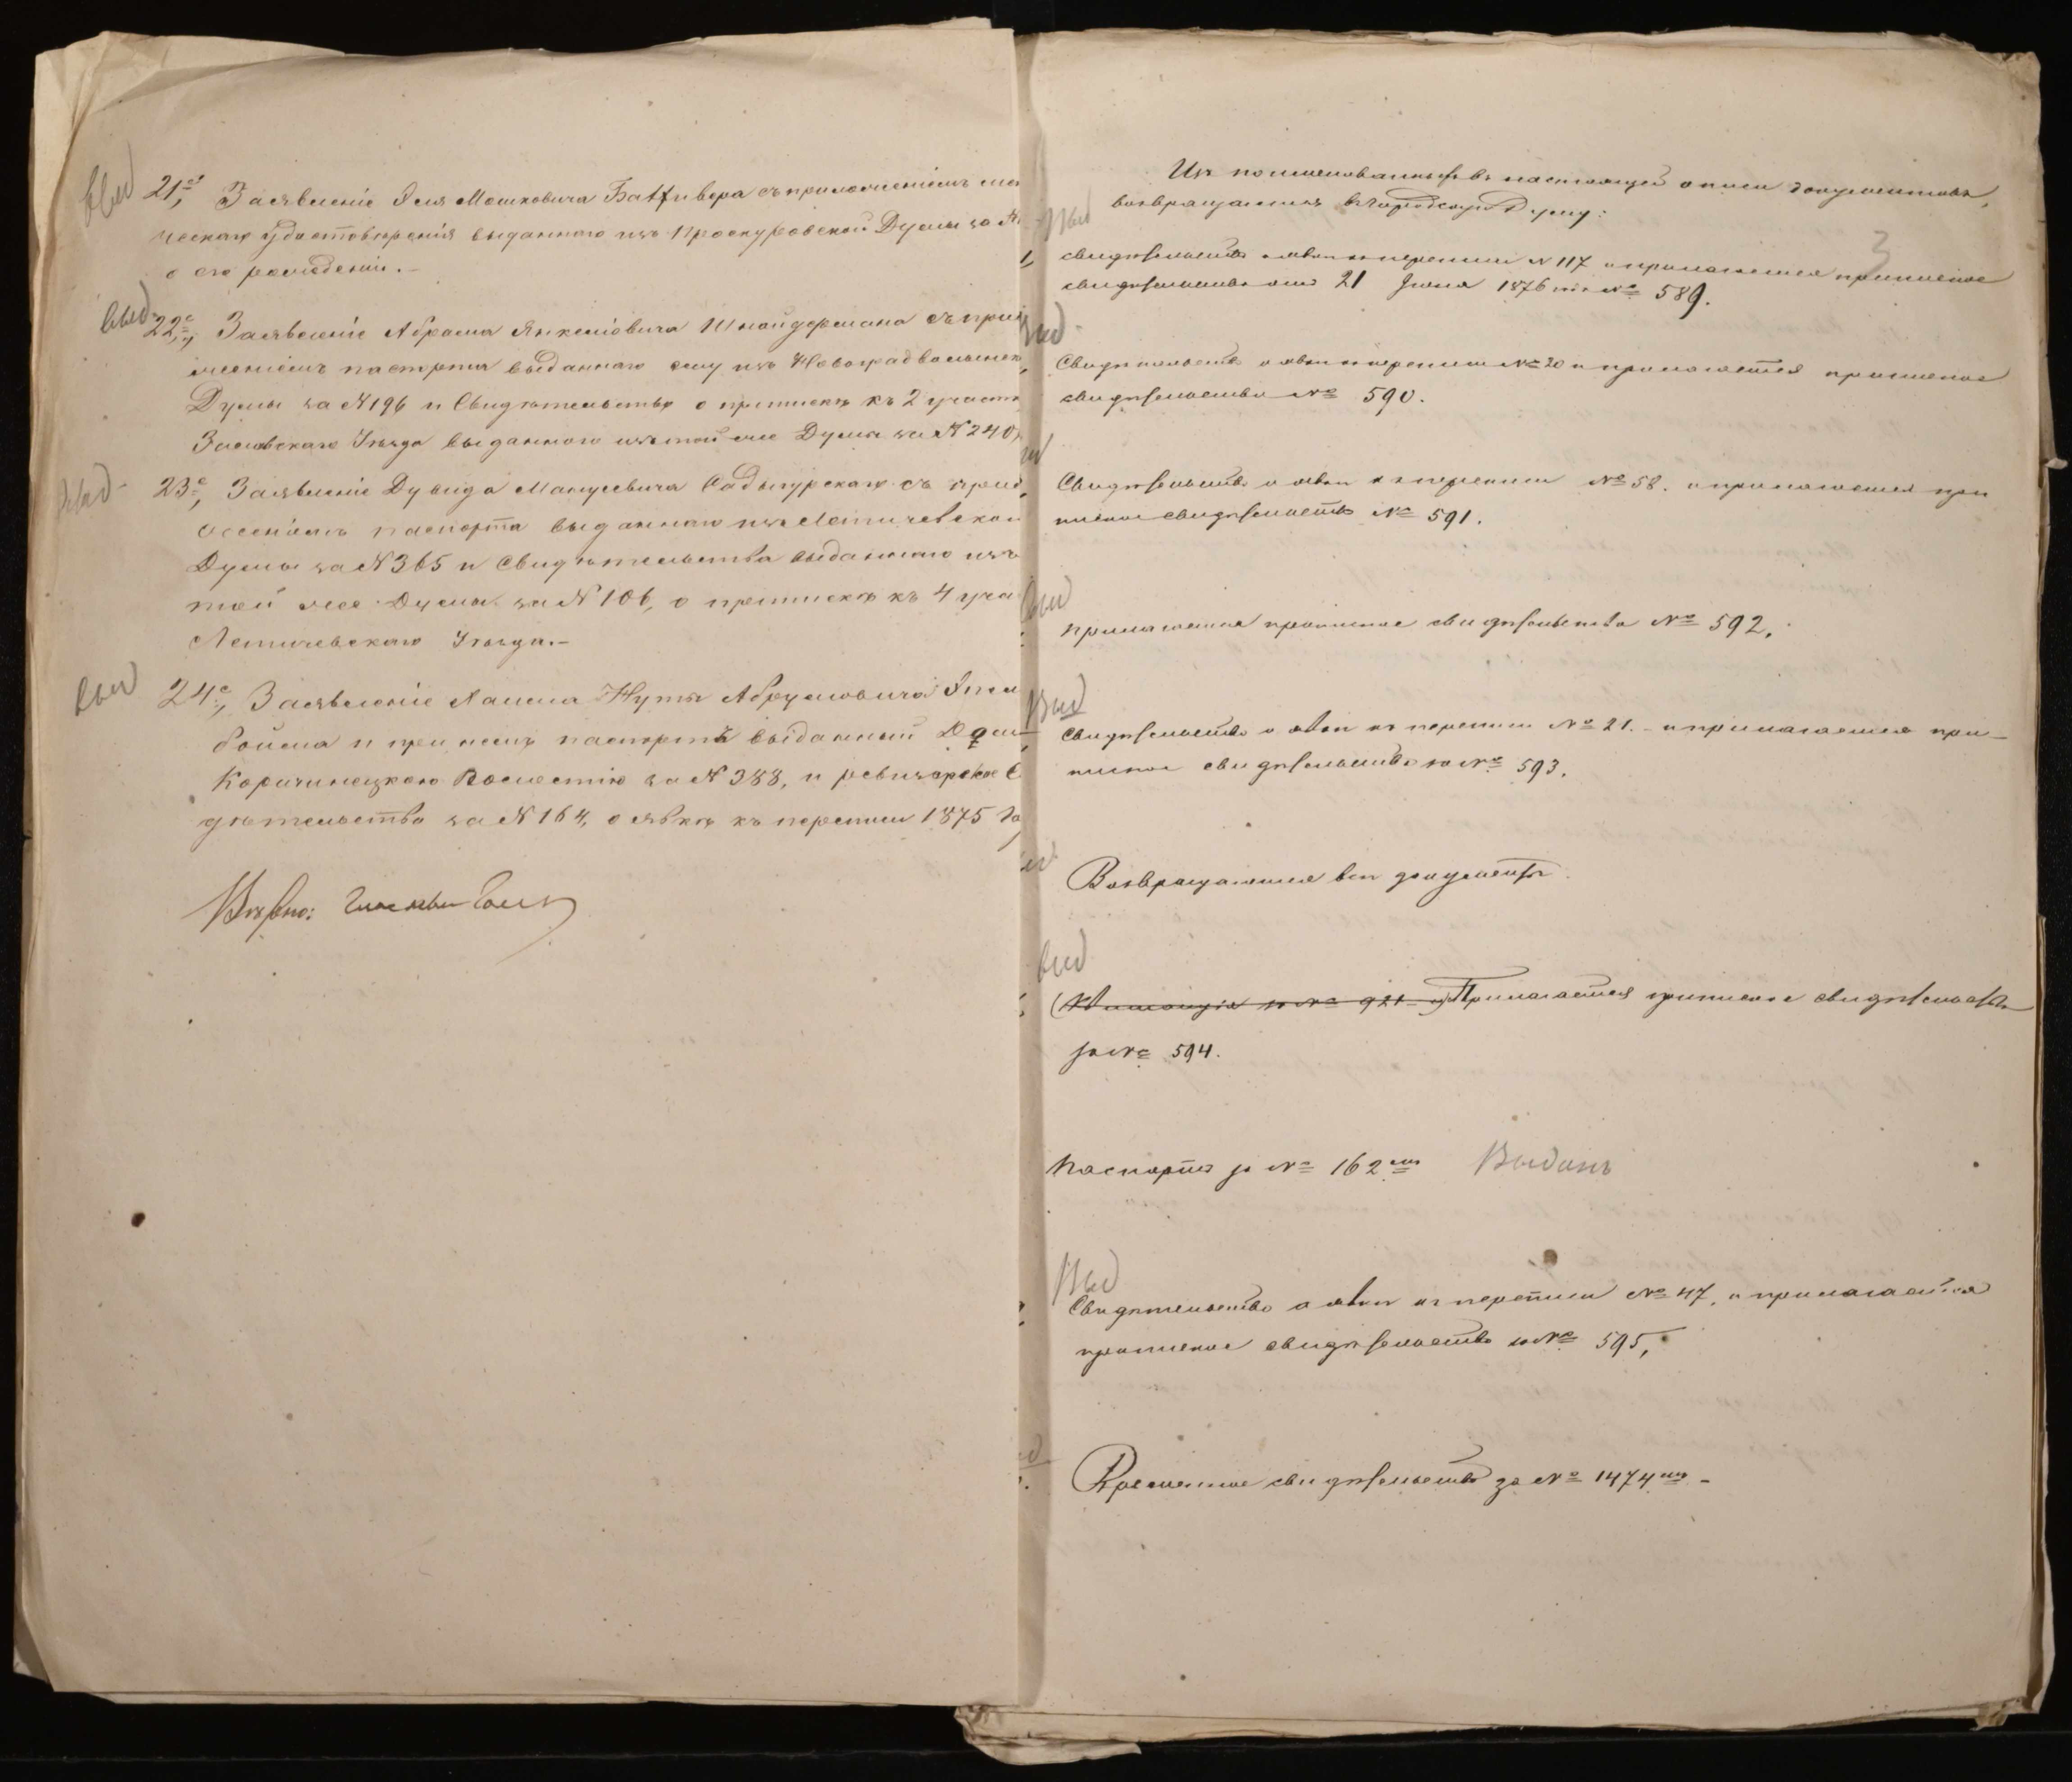 выд
21е, Заявленіе Эля Мошковича Батхивера съ приложеніемъ
ческаго удостовѣренія выданнаго изъ Проскуровской Думы за №
о его рожденіи.
выд
22е, Заявленіе Абрама Янкеліовича Шнайдермана съ прил
женіемъ паспорта выданнаго ему изъ Новоградволынск
Думы за №196 и Свидѣтельства о припискѣ къ 2 участк
Заславскаго Уѣзда выданного изъ той же Думы за №240,
выд
23е, Заявленіе Дувида Манусевича Садыгурскаго съ прил
оженіемъ паспорта выданнаго изъ Летичевской
Думы за №365 и Свидѣтельства выданнаго изъ
той же Думы за №106, о припискѣ къ 4 уча
Летичевскаго Уѣзда.-
выд
24е, Заявленіе
бойма и при немъ паспортъ выданный
Волостію за №388, и ревизорское С
дѣтельство за №164, о явкѣ къ переписи 1875 го
Вѣрно:
3
Изъ поименованныхъ въ настоящей описи документовъ,
возвращаются въ Городскую Думу:
выд
1, свидѣтельство о явкѣ къ переписи №117 и прилагается приписное
свидѣтельство отъ 21 Іюня 1876 за № 589.
выд
Свидѣтельство о явкѣ къ переписи №20 и прилагается приписное
свидѣтельство № 590.
Свидѣтельство о явкѣ къ переписи № 58. и прилагается при
писное свидѣтельство № 591.
выд
прилагается приписное свидѣтельство № 592.
выд
Свидѣтельство о явкѣ къ переписи № 21.- и прилагается при-
писное свидѣтельство за № 593.
Возвращаются всѣ документы.
выд
(Квитанція за № 921 и) Прилагается приписное свидѣтельство
за № 594.
Паспортъ за № 162 Выданъ
выд
Свидѣтельство о явкѣ къ переписи № 47, и прилагается
приписное свидѣтельство за № 595,
Временное свидѣтельство за № 1474 -